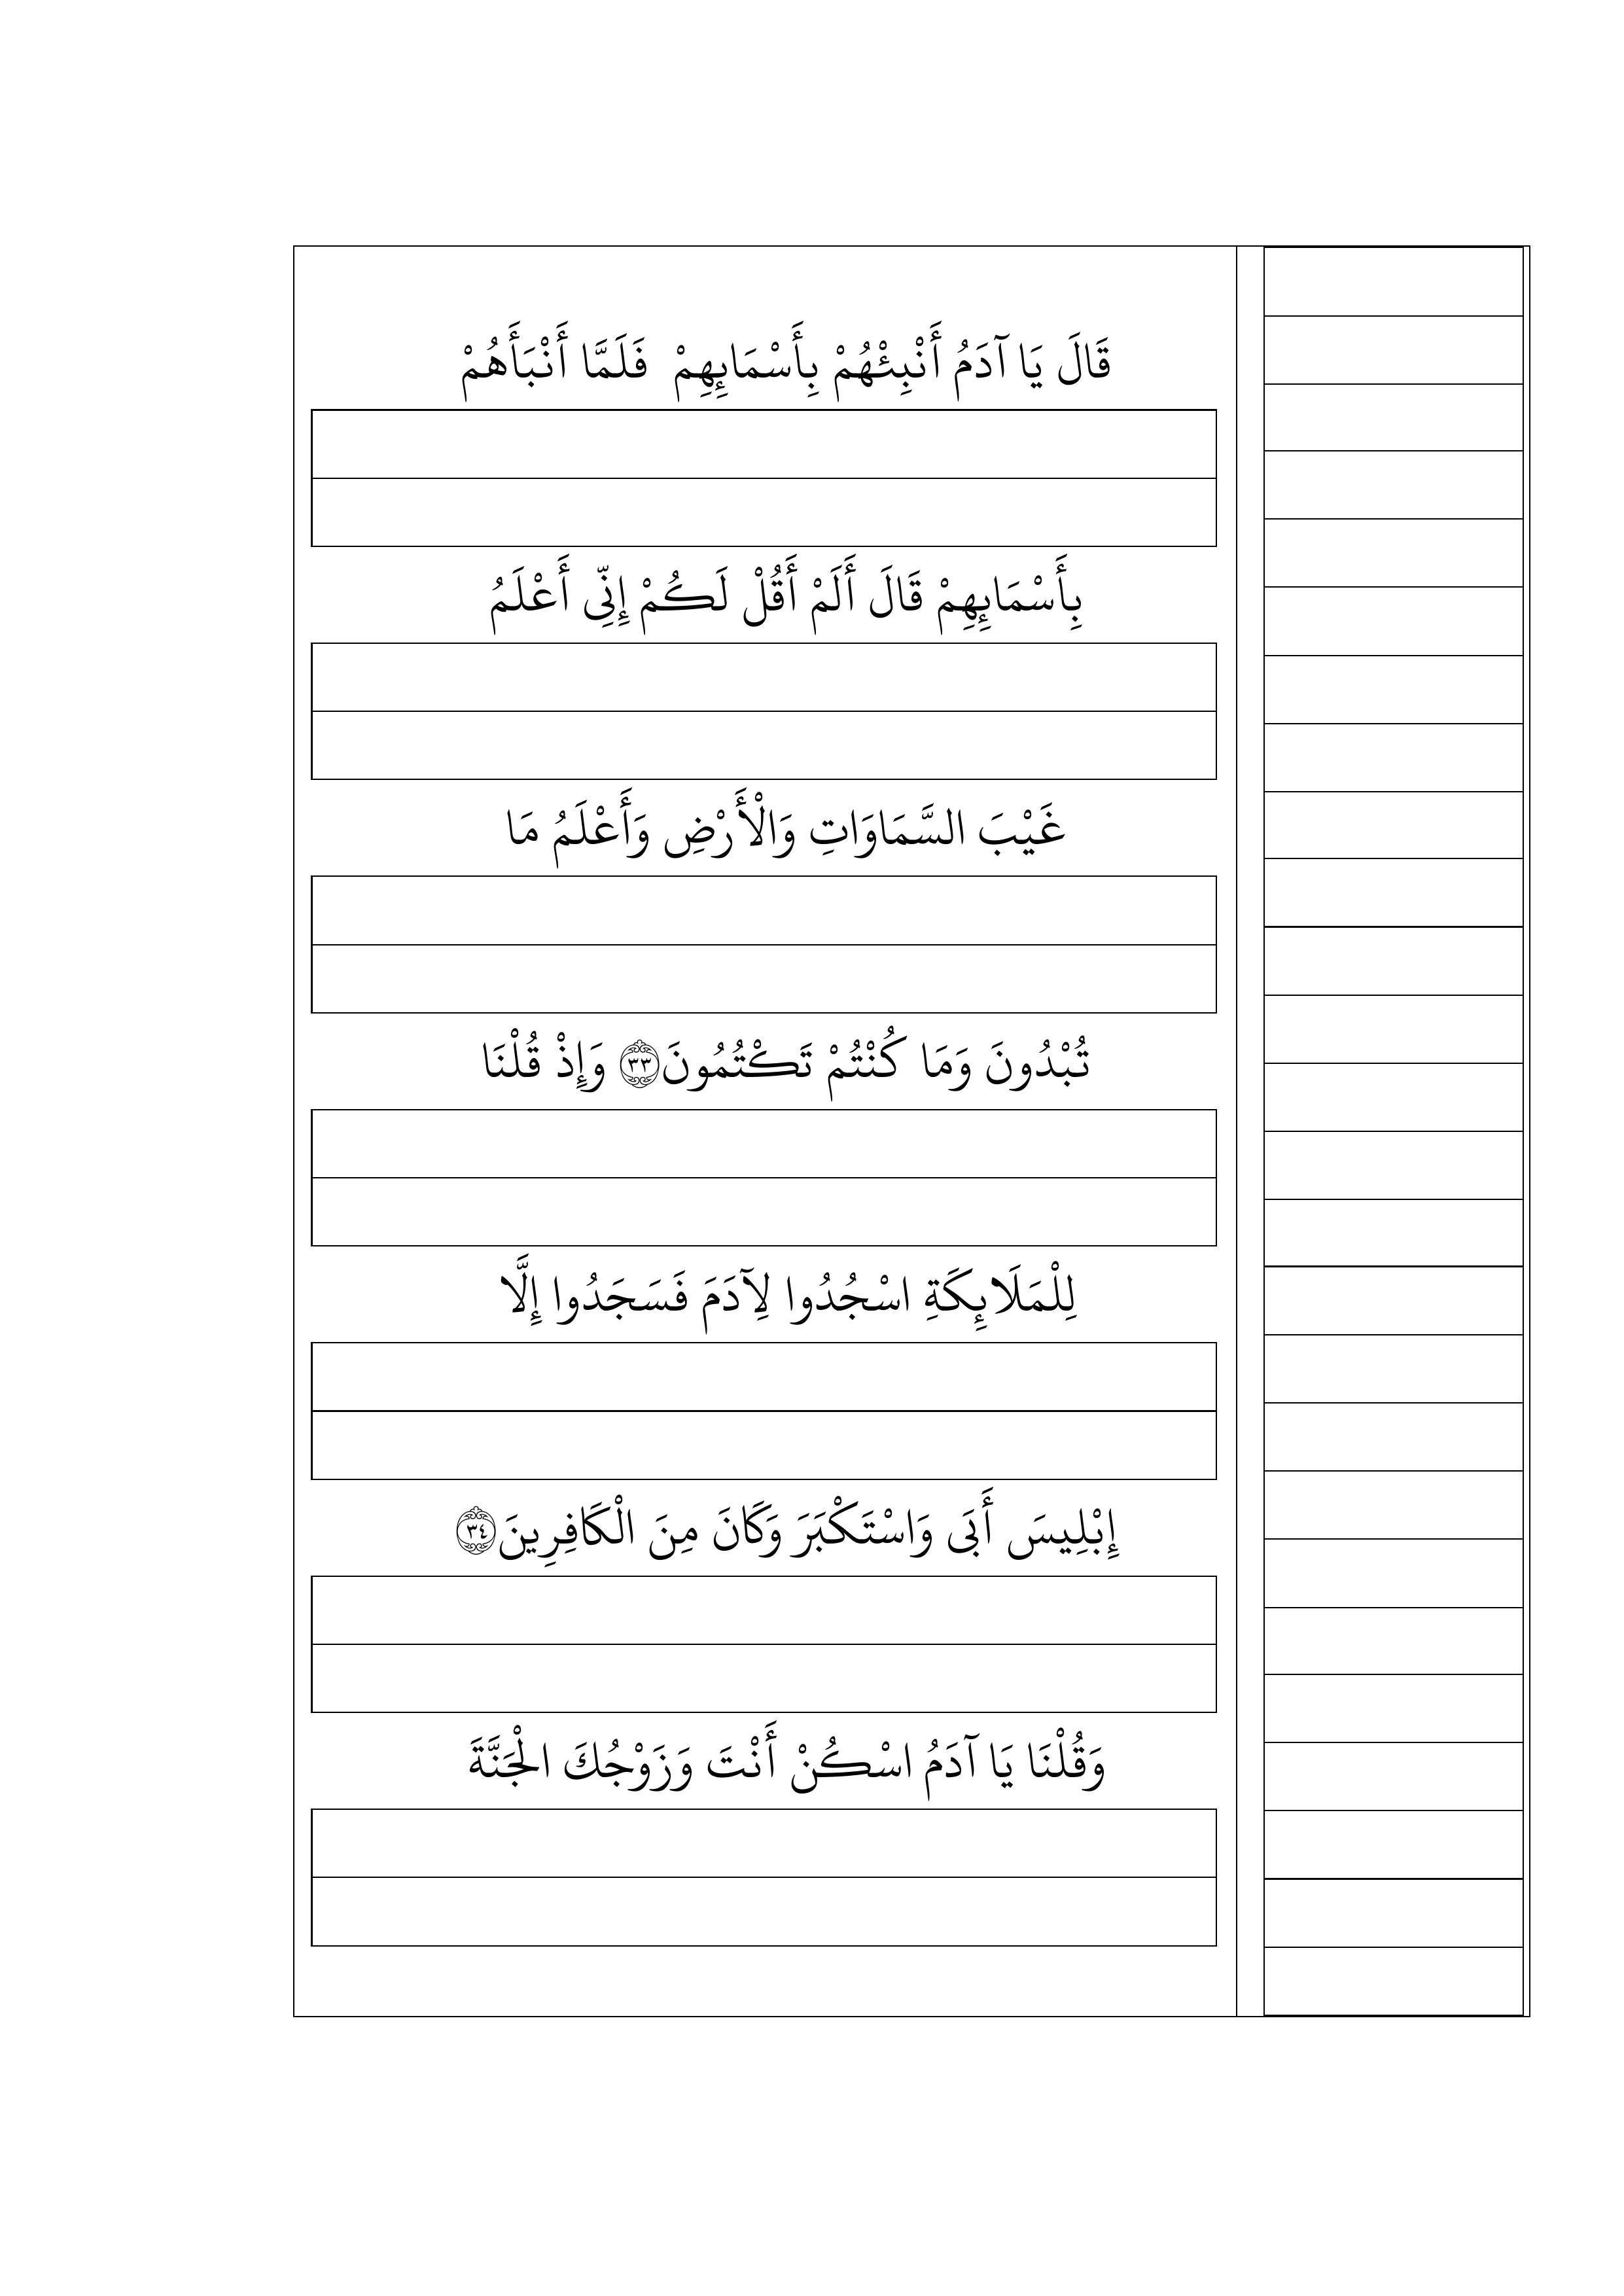 قَالَ يَا آدَمُ أَنْبِئْهُمْ بِأَسْمَائِهِمْ فَلَمَّا أَنْبَأَهُمْ
بِأَسْمَائِهِمْ قَالَ أَلَمْ أَقُلْ لَكُمْ إِنِّي أَعْلَمُ
غَيْبَ السَّمَاوَاتِ وَالْأَرْضِ وَأَعْلَمُ مَا
تُبْدُونَ وَمَا كُنْتُمْ تَكْتُمُونَ ۝٣٣ وَإِذْ قُلْنَا
لِلْمَلَائِكَةِ اسْجُدُوا لِآدَمَ فَسَجَدُوا إِلَّا
إِبْلِيسَ أَبَى وَاسْتَكْبَرَ وَكَانَ مِنَ الْكَافِرِينَ ۝٣٤
وَقُلْنَا يَا آدَمُ اسْكُنْ أَنْتَ وَزَوْجُكَ الْجَنَّةَ